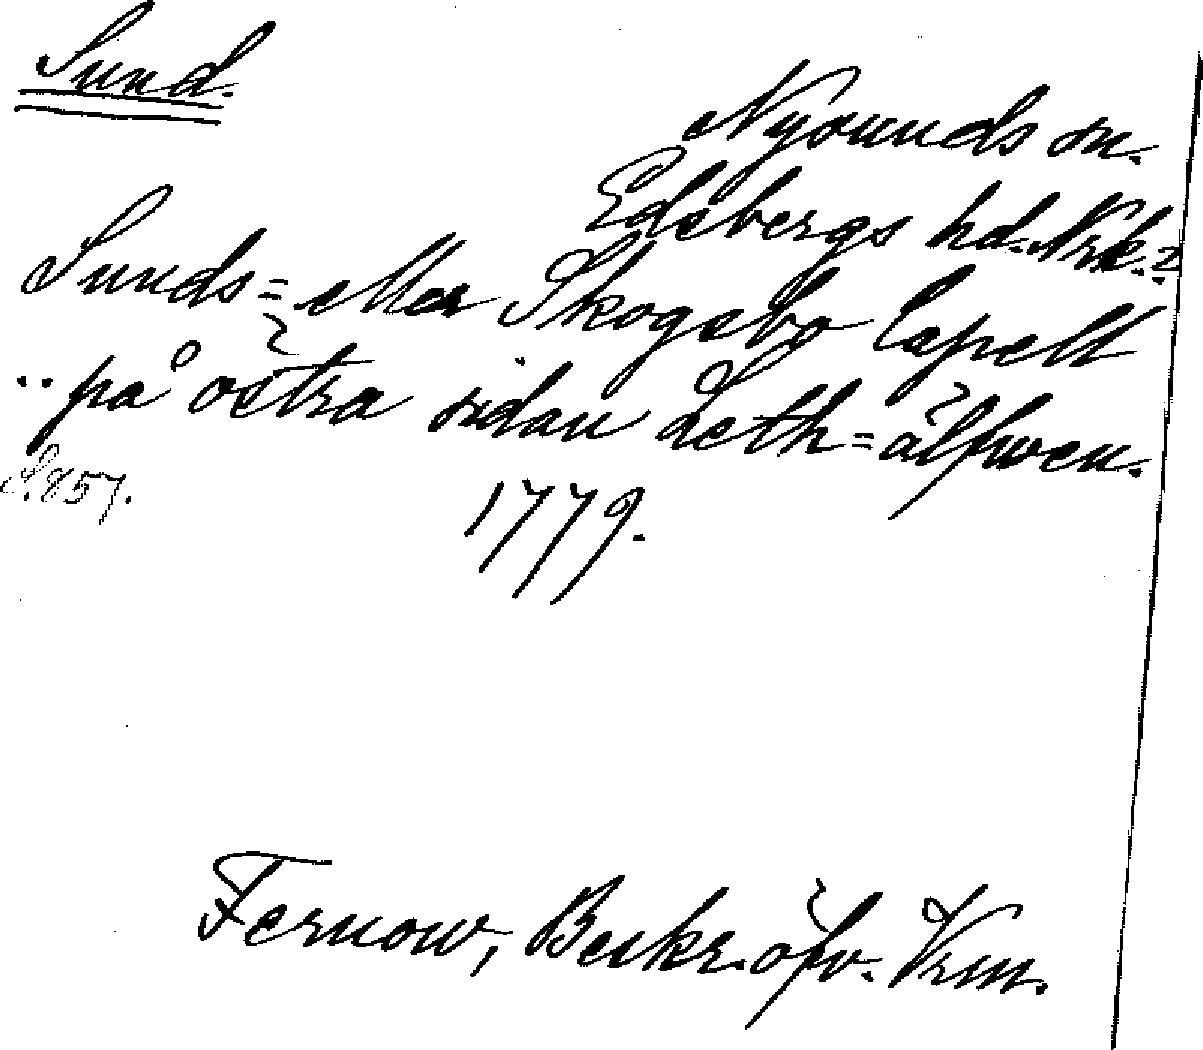 Sund.
Nysunds sn.
Edsbergs hd. Nrk.
Sunds= eller Skogsbo Capell
.. på östra sidan Leth=älfwen.
S. 857.
1779.
Fernow, Beskr. öfv. Vrm.